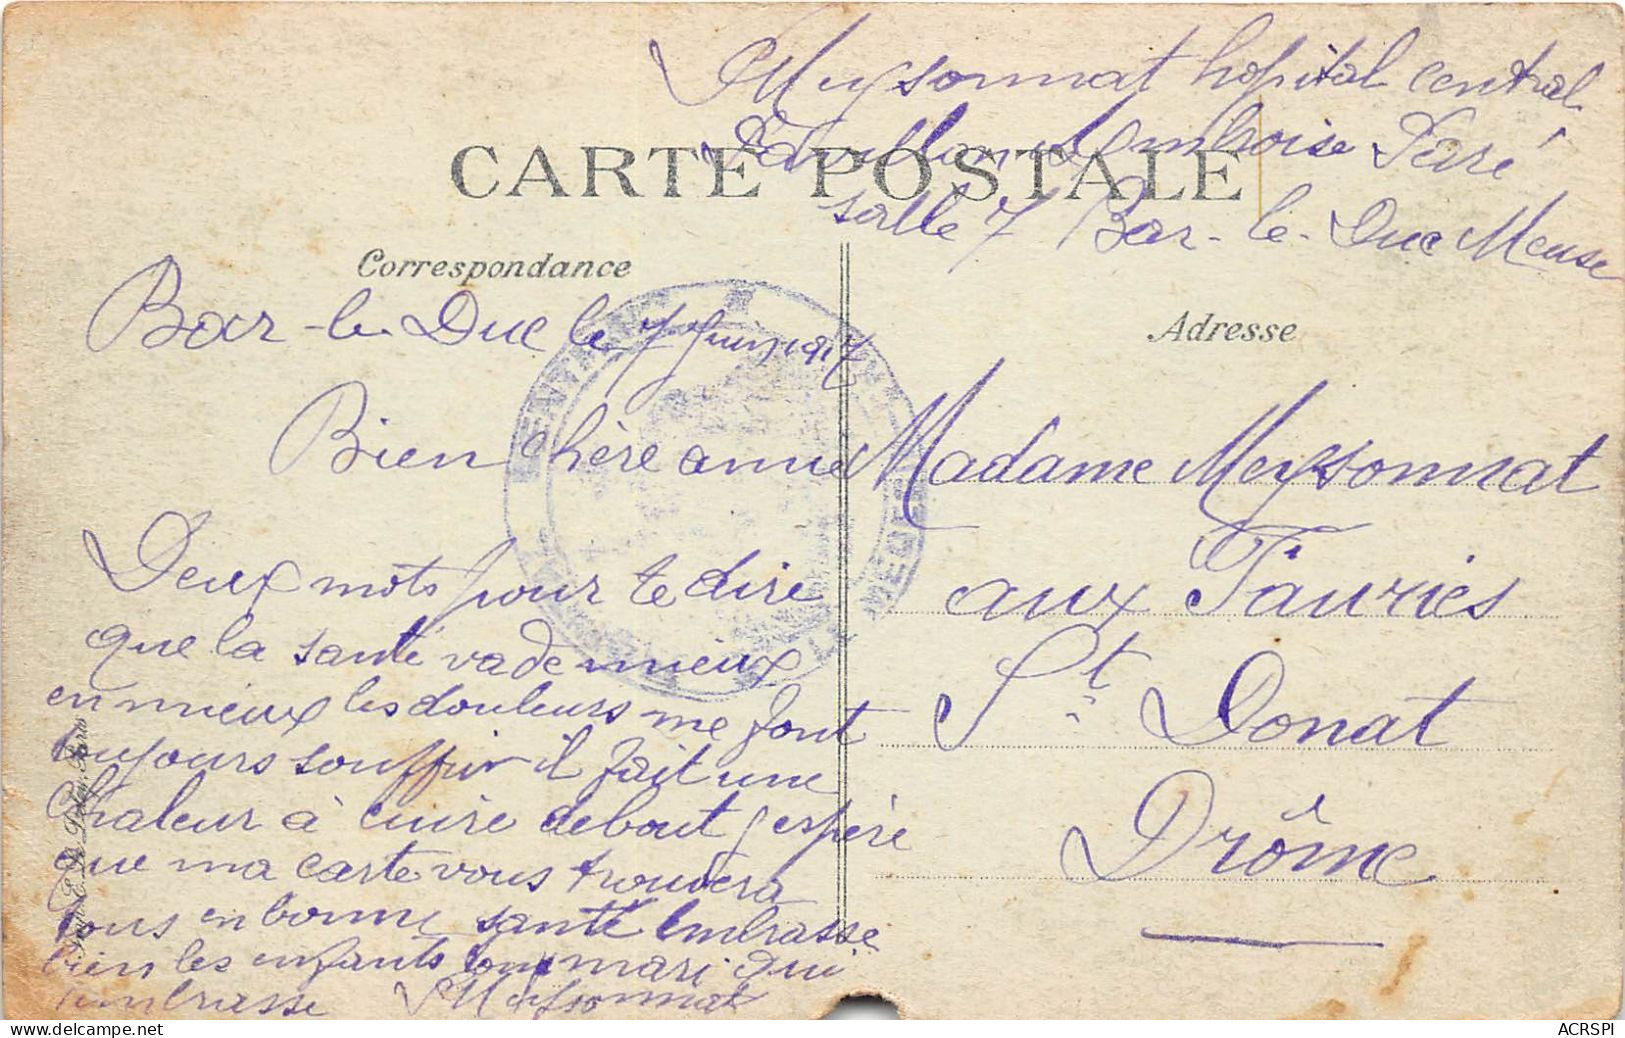 Meysonnat hôpital central
Pavillon Ambroise Paré
salle 7 Bar-le-Duc Meuse
CARTE POSTALE
Correspondance
Bar-le Duc le 7 Juin 1917
Bien chère année
Deux mots pour te dire
que la santé va de mieux
en mieux les douleurs me font
toujours souffrir il fait une
chaleur à cuire debout j espère
que ma carte vous trouvera
tous en bonne santé Embrasse
bien les enfants ton mari qui
t'embrasse Meysonnat
Adresse
Madame Meysonnat
aux Fauries
St Donat
Drôme
ACRSPI